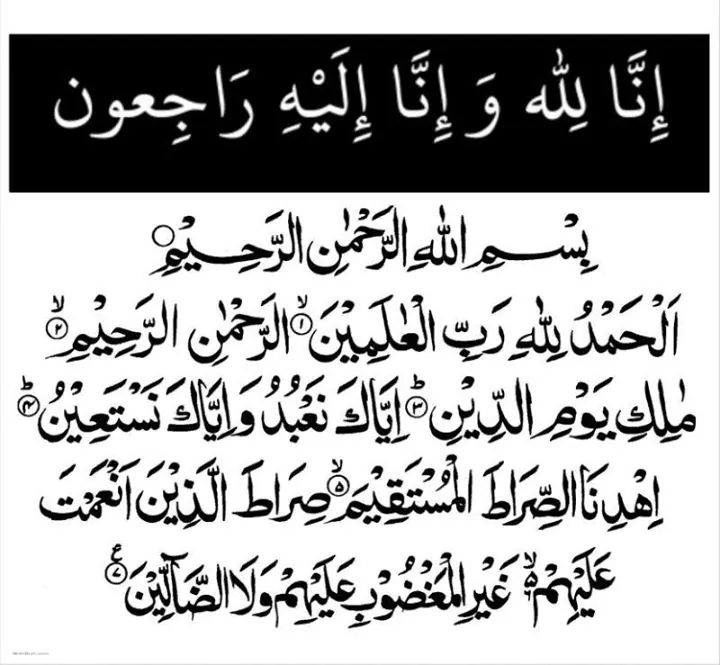 إِنَّا لِلّٰه وَ إِنَّا إِلَيْهِ رَاجِعون
بِسْمِ اللهِ الرَّحْمٰنِ الرَّحِيْمِ ○
اَلْحَمْدُ لِلهِ رَبِّ الْعٰلَمِيْنَ ۙ۱ الرَّحْمٰنِ الرَّحِيْمِ ۙ۲
مٰلِكِ يَوْمِ الدِّيْنِ ؕ۳ اِيَّاكَ نَعْبُدُ وَاِيَّاكَ نَسْتَعِيْنُ ؕ۴
اِهْدِنَا الصِّرَاطَ الْمُسْتَقِيْمَ ۙ۵ صِرَاطَ الَّذِيْنَ اَنْعَمْتَ
عَلَيْهِمْ ۙ۬ۦ غَيْرِ الْمَغْضُوْبِ عَلَيْهِمْ وَلَا الضَّآلِّيْنَ ۷